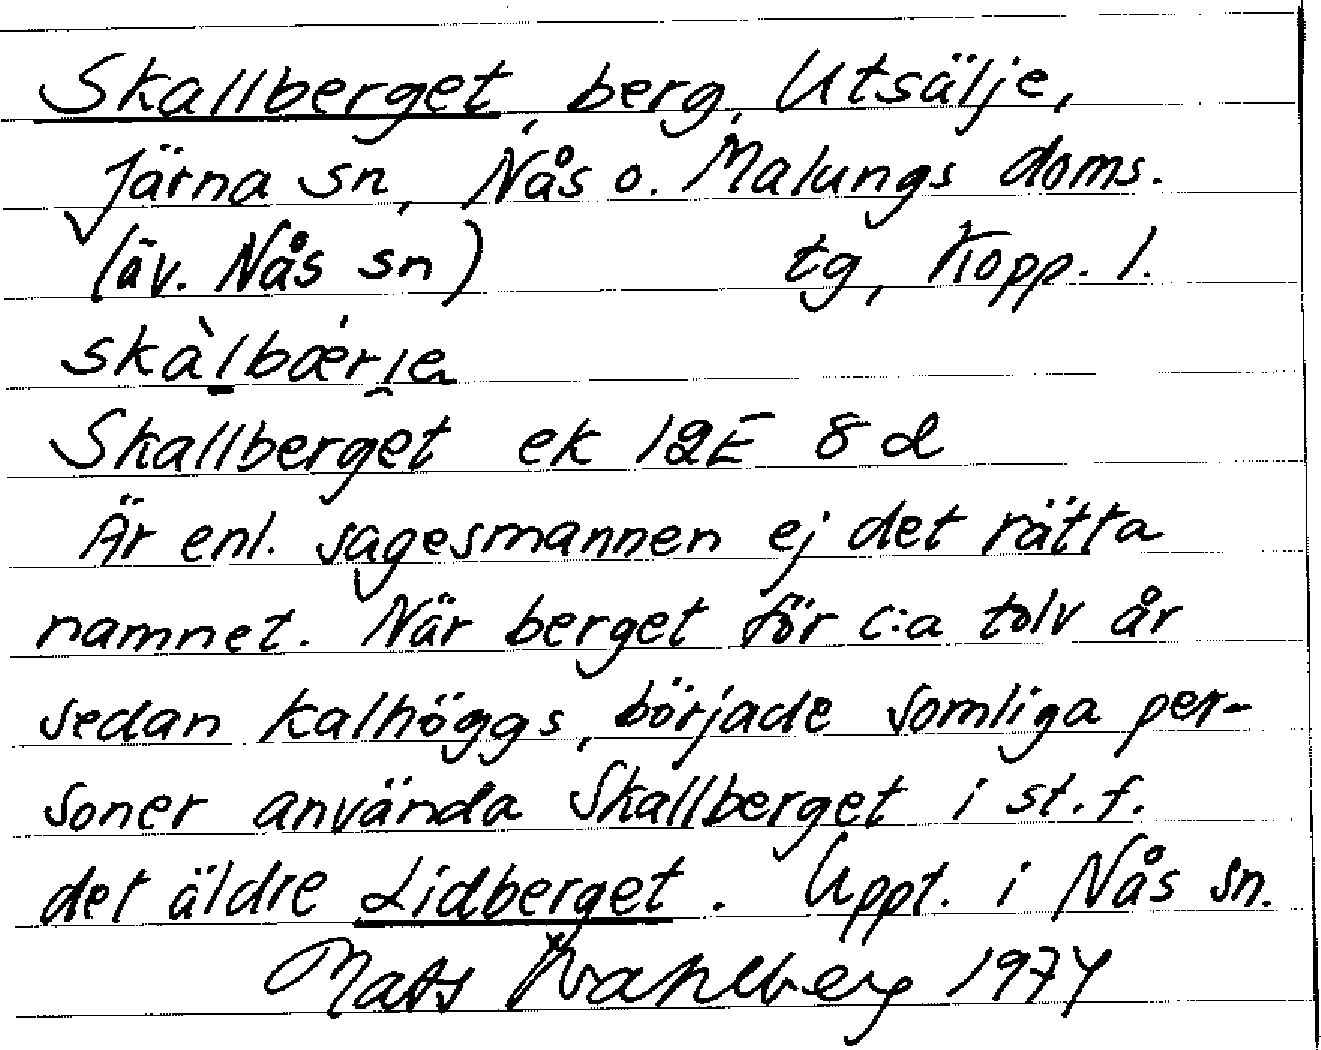 Skallberget, berg, Utsälje,
Järna sn, Nås o. Malungs doms.
(äv. Nås sn) tg, Kopp. l.
skàlbæ̀rje
Skallberget ek 12E 8d
Är enl. sagesmannen ej det rätta
namnet. När berget för c:a tolv år
sedan kalhöggs, började somliga per-
soner använda Skallberget i st. f.
det äldre Lidberget. Uppt. i Nås sn.
Mats Wahlberg 1974